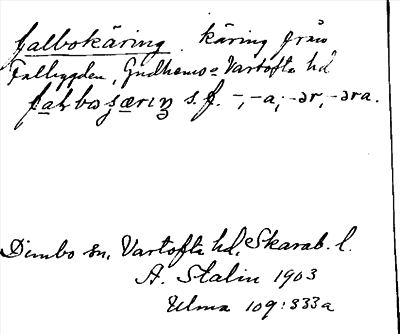 falbokäring. käring från
Falbygden, Gudhems o Vartofta hd
s. f. -, -a; -ər, -əra.
Dimbo sn, Vartofta hd, Skarab. l.
A. Stalin 1903
Ulma 109:333a